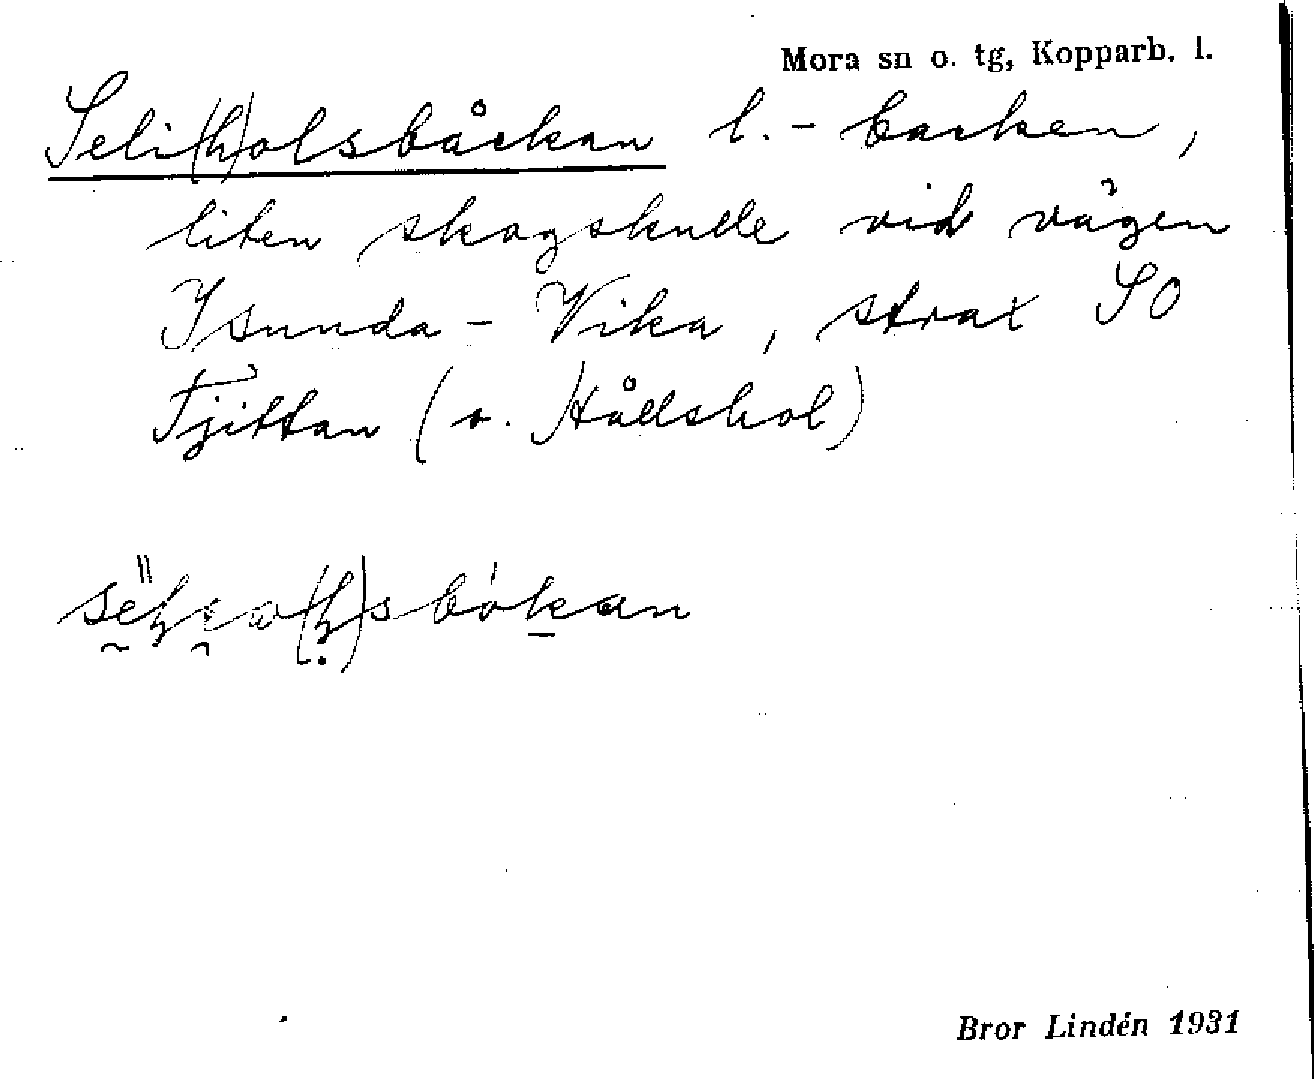 Mora sn o. tg, Kopparb. l.
Seli(h)olsbåckan l. - backen,
liten skogskulle vid vägen
Isunda - Vika, strax SO
Tjittan (o. Hållshol)
Bror Lindén 1931